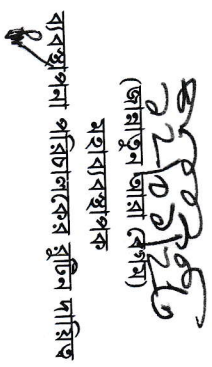 (জান্নাতুন আরা বেগম)
মহাব্যবস্থাপক
ব্যবস্থাপনা পরিচালকের রুটিন দায়িত্ব